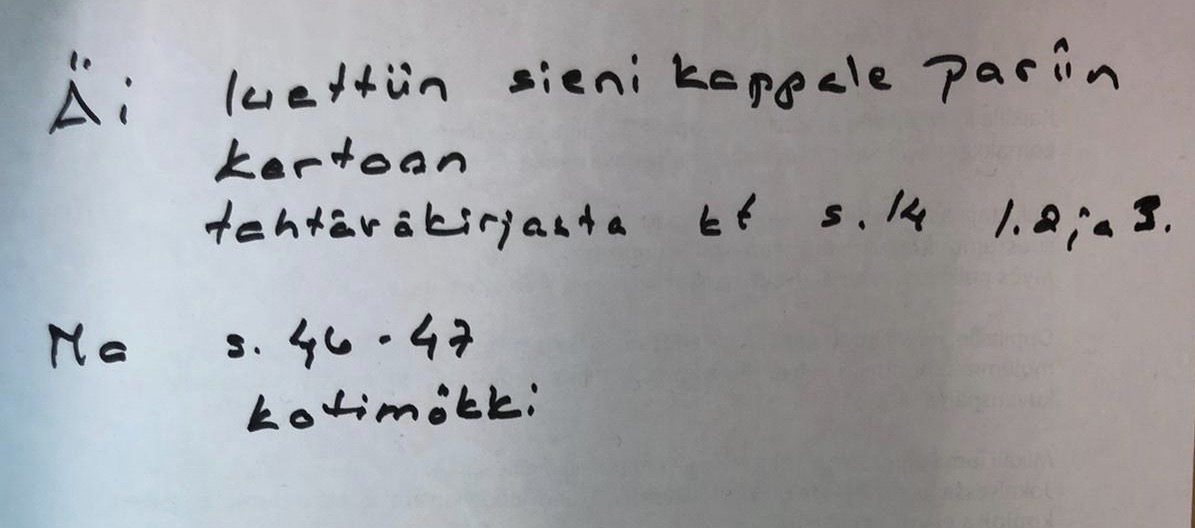 Äi luettiin sieni kappale pariin
kertaan
tehtäväkirjasta kt s. 14 1. 2 ja 3.
Ma s. 46 - 47
kotimökki